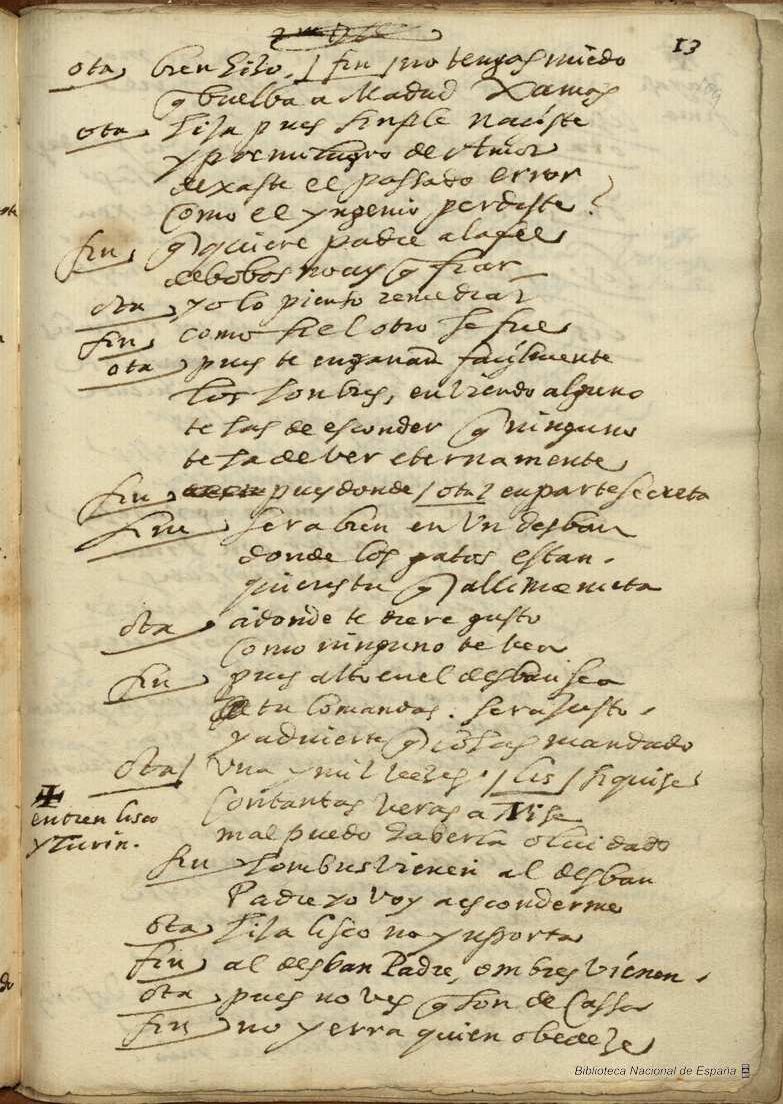 13
ota bien hizo. / fin / no tengas miedo
q̃ buelba a Madrid Xamas
ota hija pues simple naçiste
y por milagro de Amor
dexaste el passado error
como el yngenio perdiste?
fin q̃ quiere padre a la fee
de bobos no ay q̃ fiar
ota yo lo pienso remediar
fin como si el otro se fue
ota pues te engañan façilmente
los honbres, en viendo alguno
te has de esconder q̃ ninguno
te ha de ver eternamente
fin pues donde / ota / en parte secreta
fin sera bien en Vn desban
donde los gatos estan.
quieres tu q̃ alli me meta
ota adonde te diere gusto
como ninguno te vea
fin pues alto en el desban sea
tu lo mandas. sera justo.
y advierte q̃ lo has mandado
ota / Vna y mil vezes. / lis / si quise
✠
entren liseo
y Turin.
con tantas veras a Nise
mal puedo haberla olvidado
fin hombres vienen al desban
Padre yo voy a esconderme
ota hija liseo no ynporta
fin al desban Padre, ombres vienen.
ota pues no ves q̃ son de Cassa
fin no yerra quien obedeze
Biblioteca Nacional de España